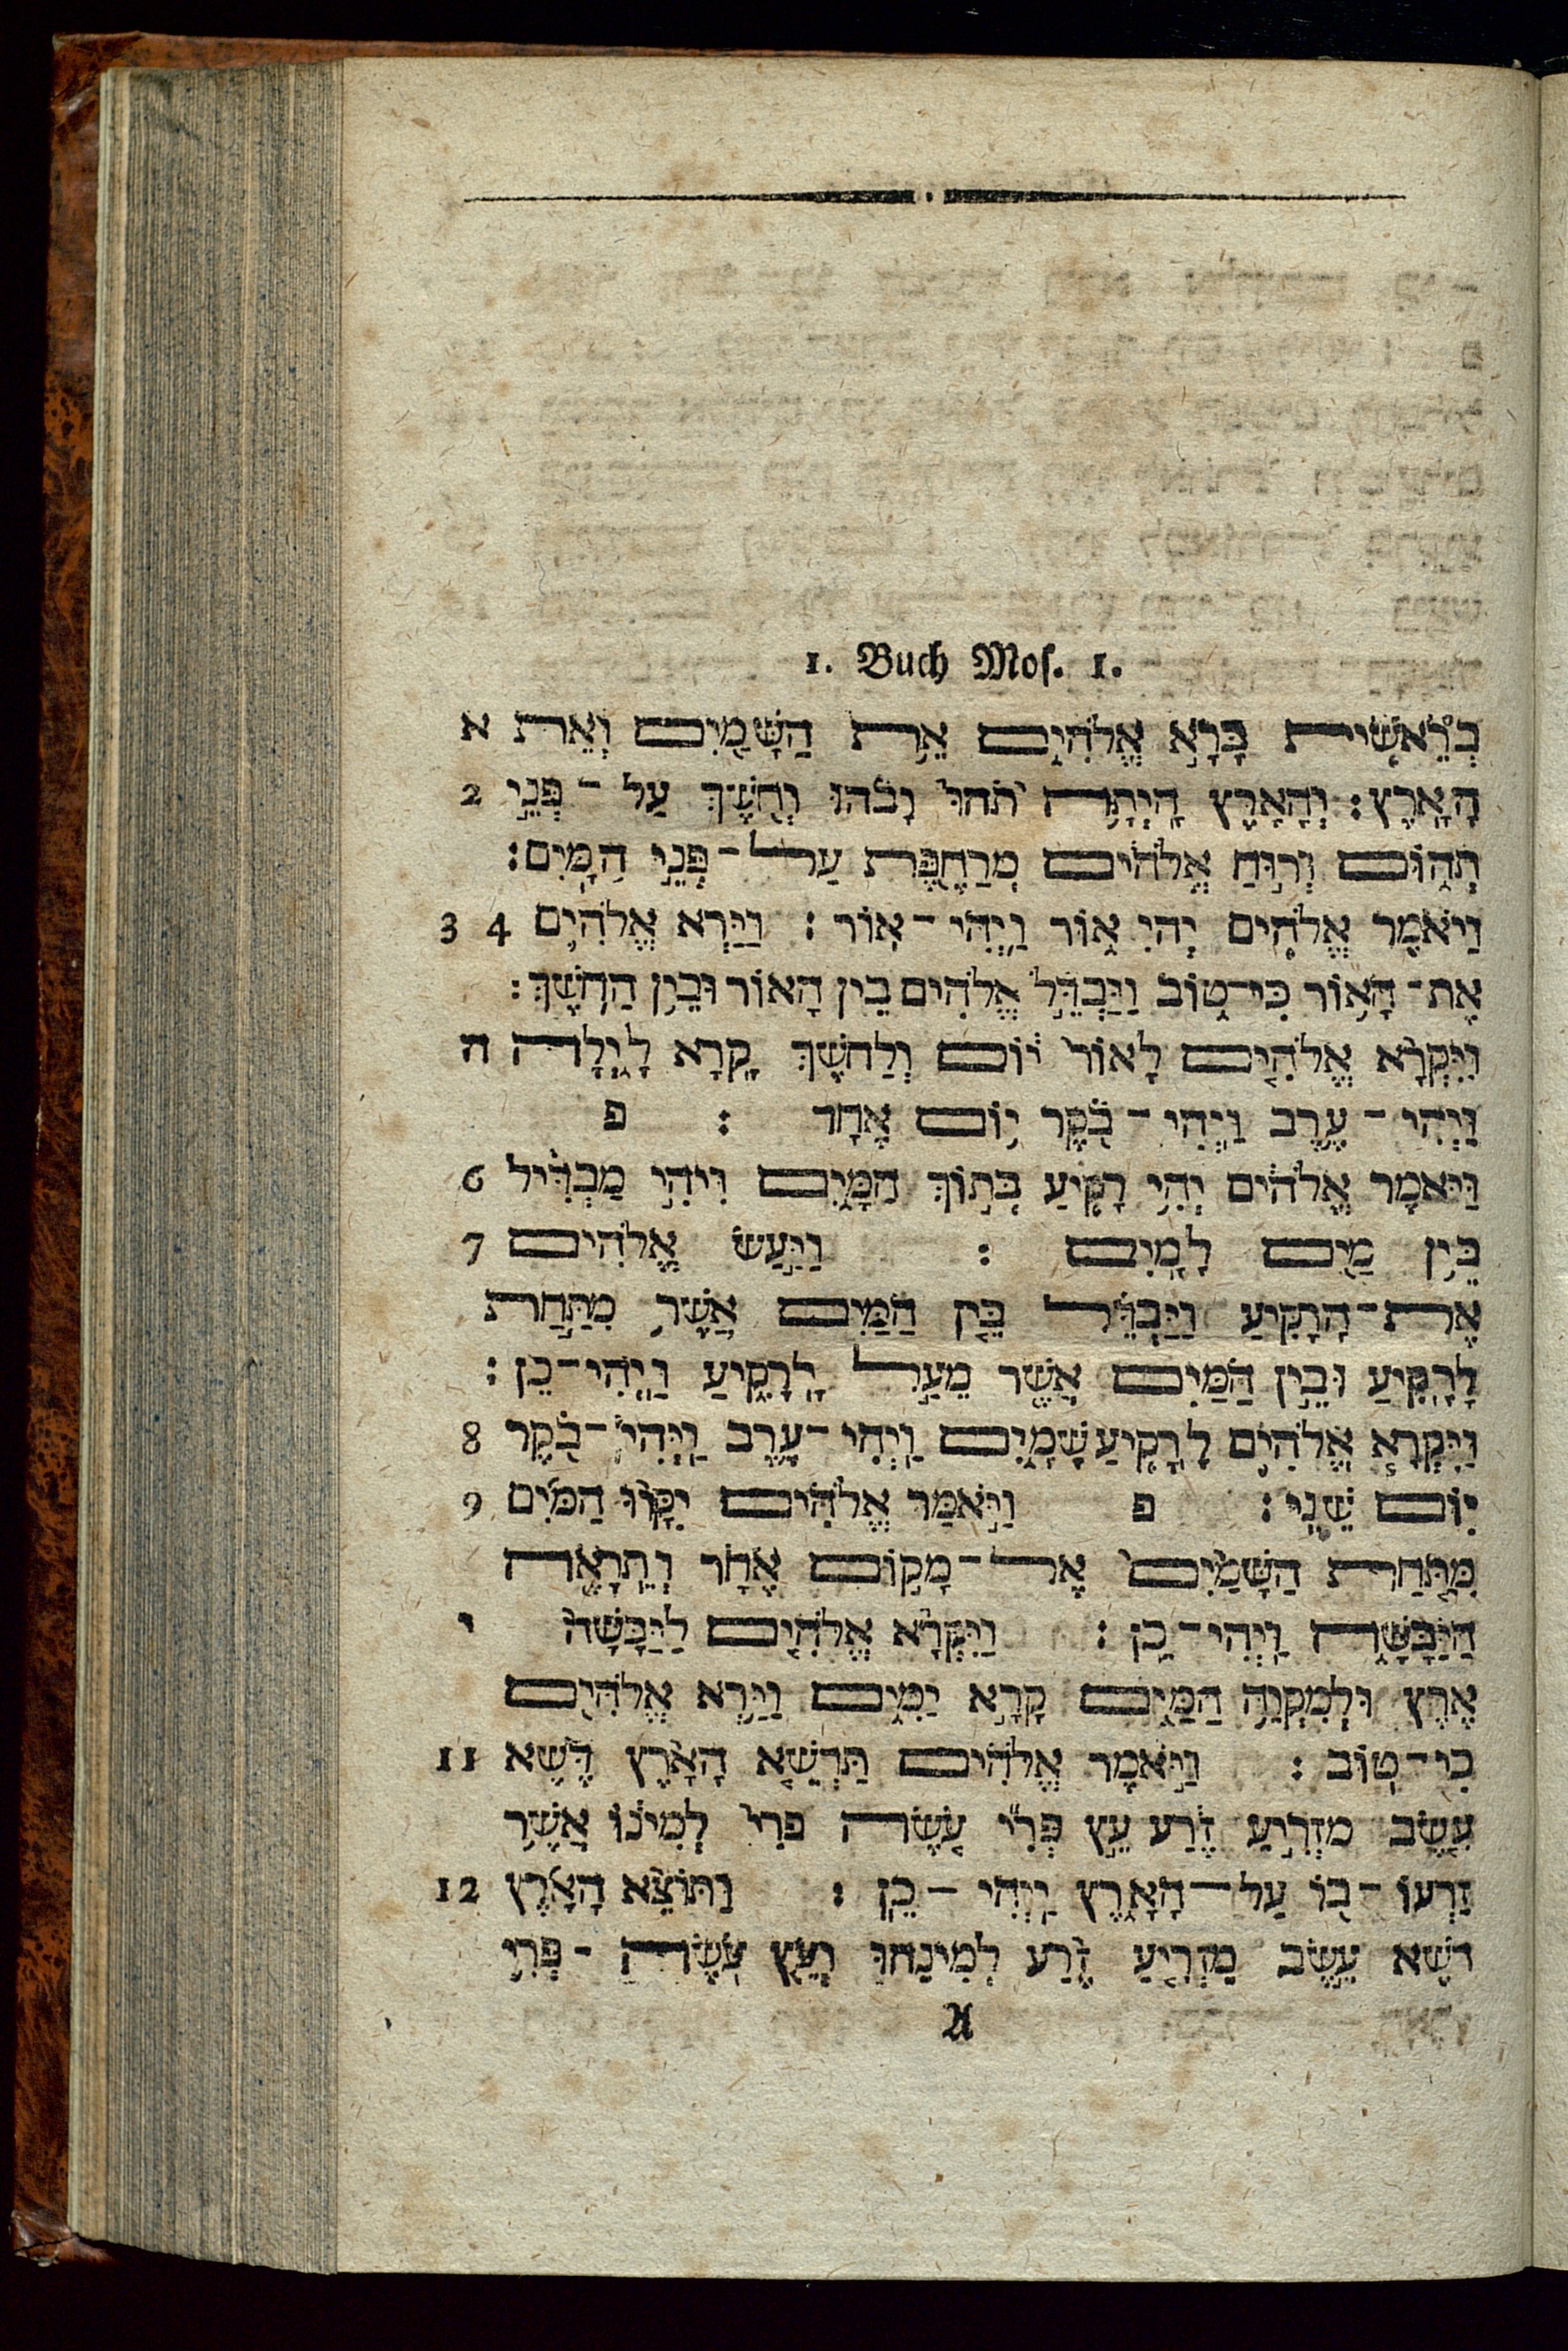 1. Buch Mos. 1.
בְּרֵאשִׁית בָּרָא אֱלֹהִים אֵת הַשָּׁמַיִם וְאֵת א
הָאָרֶץ: וְהָאָרֶץ הָיְתָה תֹהוּ וָבֹהוּ וְחֹשֶׁךְ עַל־פְּנֵי 2
תְהוֹם וְרוּחַ אֱלֹהִים מְרַחֶפֶת עַל־פְּנֵי הַמָּיִם:
וַיֹּאמֶר אֱלֹהִים יְהִי אוֹר וַיְהִי־אוֹר: וַיַּרְא אֱלֹהִים 4 3
אֶת־הָאוֹר כִּי־טוֹב וַיַּבְדֵּל אֱלֹהִים בֵּין הָאוֹר וּבֵין הַחֹשֶׁךְ:
וַיִּקְרָא אֱלֹהִים לָאוֹר יוֹם וְלַחֹשֶׁךְ קָרָא לָיְלָה ה
וַיְהִי־עֶרֶב וַיְהִי־בֹקֶר יוֹם אֶחָד: פ
וַיֹּאמֶר אֱלֹהִים יְהִי רָקִיעַ בְּתוֹךְ הַמָּיִם וִיהִי מַבְדִּיל 6
בֵּין מַיִם לָמָיִם: וַיַּעַשׂ אֱלֹהִים 7
אֶת־הָרָקִיעַ וַיַּבְדֵּל בֵּין הַמַּיִם אֲשֶׁר מִתַּחַת
לָרָקִיעַ וּבֵין הַמַּיִם אֲשֶׁר מֵעַל לָרָקִיעַ וַיְהִי־כֵן:
וַיִּקְרָא אֱלֹהִים לָרָקִיעַ שָׁמָיִם וַיְהִי־עֶרֶב וַיְהִי־בֹקֶר 8
יוֹם שֵׁנִי: פ וַיֹּאמֶר אֱלֹהִים יִקָּווּ הַמַּיִם 9
מִתַּחַת הַשָּׁמַיִם אֶל־מָקוֹם אֶחָד וְתֵרָאֶה
הַיַּבָּשָׁה וַיְהִי־כֵן: וַיִּקְרָא אֱלֹהִים לַיַּבָּשָׁה י
אֶרֶץ וּלְמִקְוֵה הַמַּיִם קָרָא יַמִּים וַיַּרְא אֱלֹהִים
כִּי־טוֹב: וַיֹּאמֶר אֱלֹהִים תַּדְשֵׁא הָאָרֶץ דֶּשֶׁא 11
עֵשֶׂב מַזְרִיעַ זֶרַע עֵץ פְּרִי עֹשֶׂה פְּרִי לְמִינוֹ אֲשֶׁר
זַרְעוֹ־בוֹ עַל־הָאָרֶץ וַיְהִי־כֵן: וַתּוֹצֵא הָאָרֶץ 12
דֶּשֶׁא עֵשֶׂב מַזְרִיעַ זֶרַע לְמִינֵהוּ וְעֵץ עֹשֶׂה־פְּרִי
A